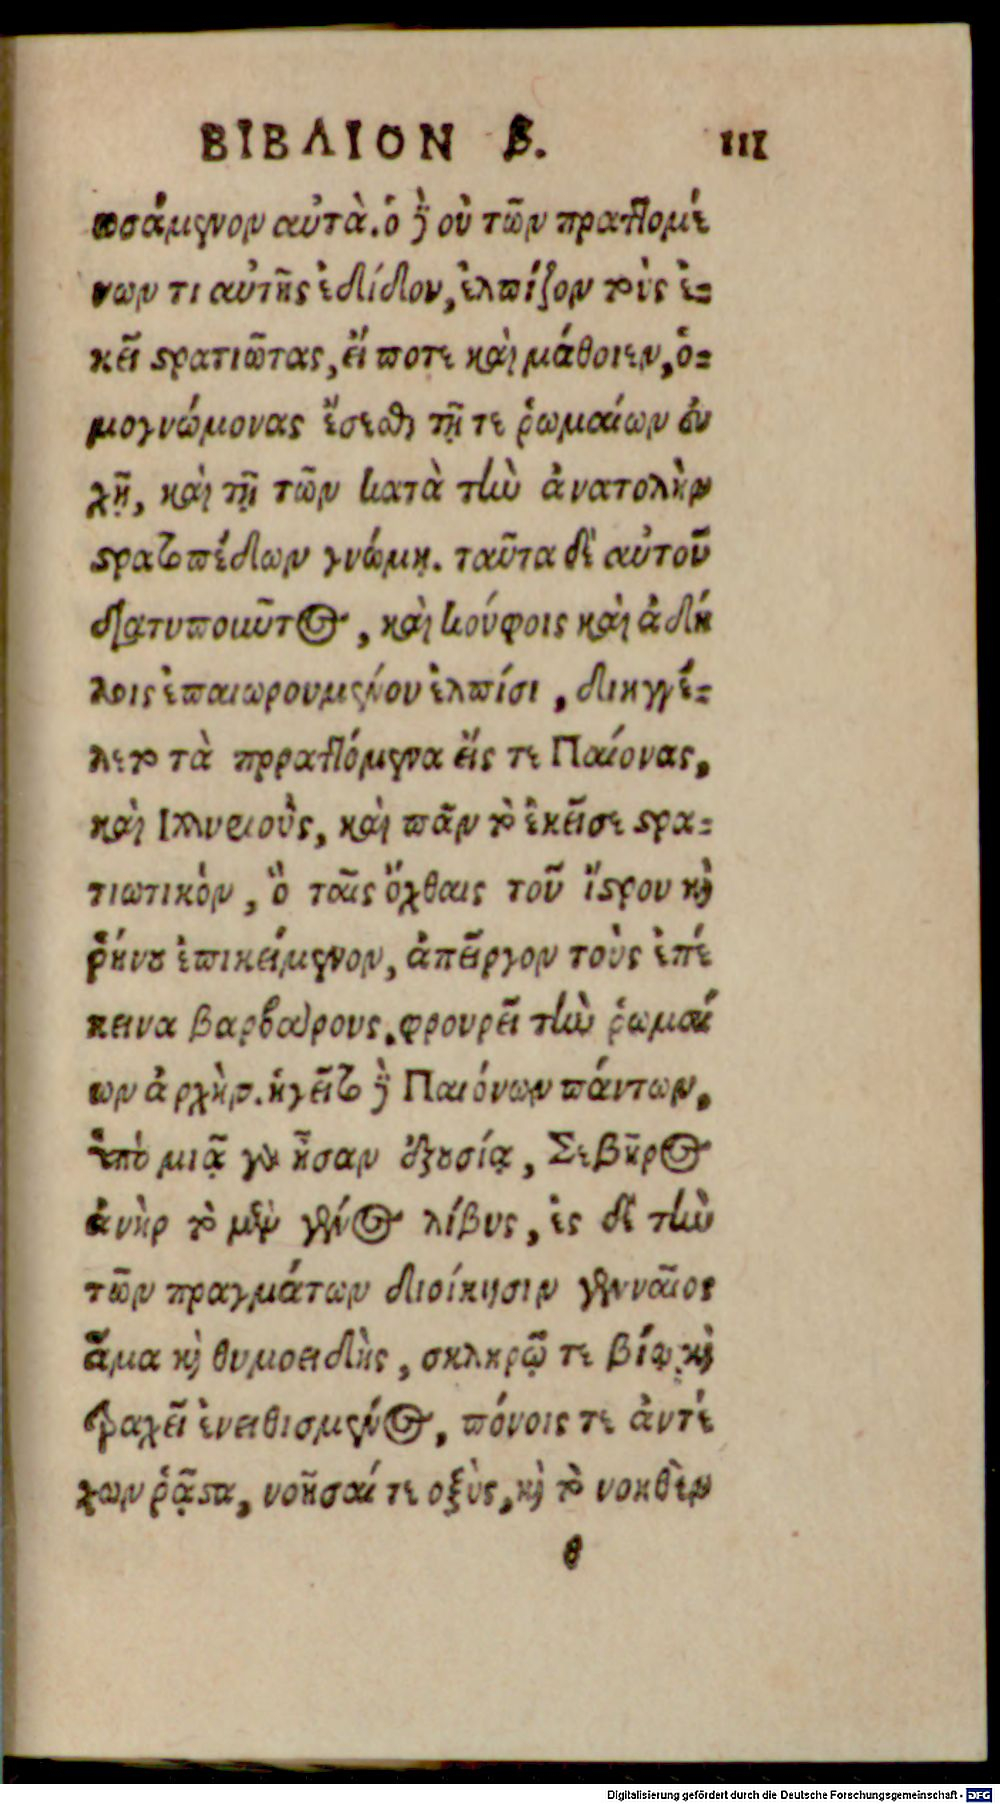 ΒΙΒΛΙΟΝ Β. 111
ωσάμενον αὐτά. ὁ δὲ οὐ τῶν πραττομέ
νων τι αὐτῆς ἐδίδου, ἐλπίζων τοὺς ἐ=
κεῖ στρατιώτας, εἴ ποτε καὶ μάθοιεν, ὁ=
μογνώμονας ἔσεσθαι τῇ τε ῥωμαίων εὐ
χῇ, καὶ τῇ τῶν κατὰ τὴν ἀνατολὴν
στρατοπέδων γνώμῃ. ταῦτα δὲ αὐτοῦ
διατυποῦντος, καὶ κούφοις καὶ ἀδή
λοις ἐπαιωρουμένου ἐλπίσι, διηγγέ=
λετο τὰ πρραττόμενα εἴς τε Παίονας,
καὶ Ἰλλυριοὺς, καὶ πᾶν τὸ ἐκεῖσε στρα=
τιωτικὸν, ὃ ταῖς ὄχθαις τοῦ ἴστρου καὶ
ῥήνου ἐπικείμενον, ἀπεῖργον τοὺς ἐπέ
κεινα βαρβάρους. φρουρεῖ τὴν ῥωμαί
ων ἀρχὴν. ἡγεῖτο δὲ Παιόνων πάντων,
ὑπὸ μιᾷ γὰρ ἦσαν ἐξουσίᾳ, Σεβῆρος
ἀνὴρ τὸ μὲν γένος λίβυς, ἐς δὲ τὴν
τῶν πραγμάτων διοίκησιν γενναῖος
ἅμα καὶ θυμοειδὴς, σκληρῷ τε βίῳ καὶ
τραχεῖ ἐνειθισμένος, πόνοις τε ἀντέ
χων ῥᾷστα, νοῆσαί τε οξὺς, καὶ τὸ νοηθὲν
θ
Digitalisierung gefördert durch die Deutsche Forschungsgemeinschaft - DFG